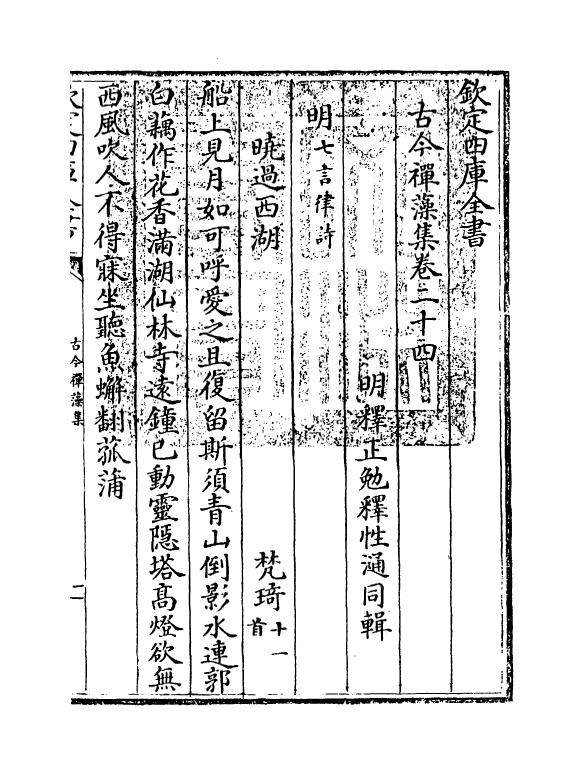 欽定四庫全書
古今禪藻集卷二十四
明釋正勉釋性㴋同輯
明七言律詩
曉過西湖
梵琦十一首
船上見月如可呼愛之且復留斯須青山倒影水連郭
白藕作花香滿湖仙林寺遠鐘已動靈隱塔高燈欲無
西風吹人不得寐坐聽魚蠏翻菰蒲
古今禪藻集